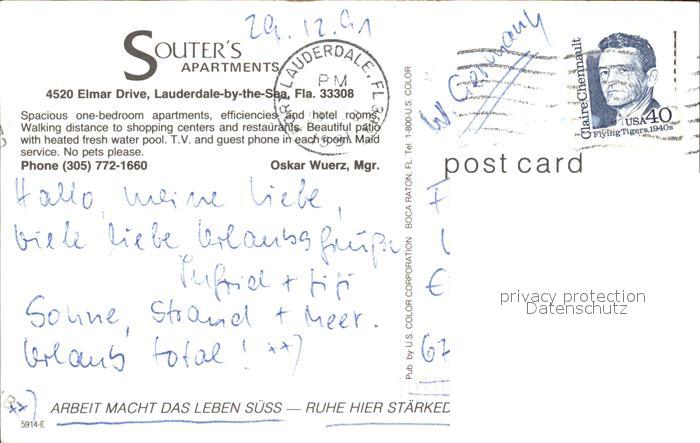 29.12.91
SOUTER'S
APARTMENTS
4520 Elmar Drive, Lauderdale-by-the-Sea, Fla. 33308
Spacious one-bedroom apartments, efficiencies and hotel rooms.
Walking distance to shopping centers and restaurants. Beautiful patio
with heated fresh water pool. T.V. and guest phone in each room. Maid
service. No pets please.
Phone (305) 772-1660 Oskar Wuerz, Mgr.
LAUDERDALE, FL
PM
Hallo, meine Liebe,
viele liebe Urlaubsgrüße
Ingrid +
Sonne, Strand + Meer.
Urlaub total! **)
**) ARBEIT MACHT DAS LEBEN SÜSS — RUHE HIER STÄRKED
5914-E
Pub. by U.S. COLOR CORPORATION BOCA RATON, FL. Tel. 1-800-U.S. COLOR
W. Germany
Claire Chennault
USA 40
Flying Tigers, 1940s
post card
67
privacy protection
Datenschutz